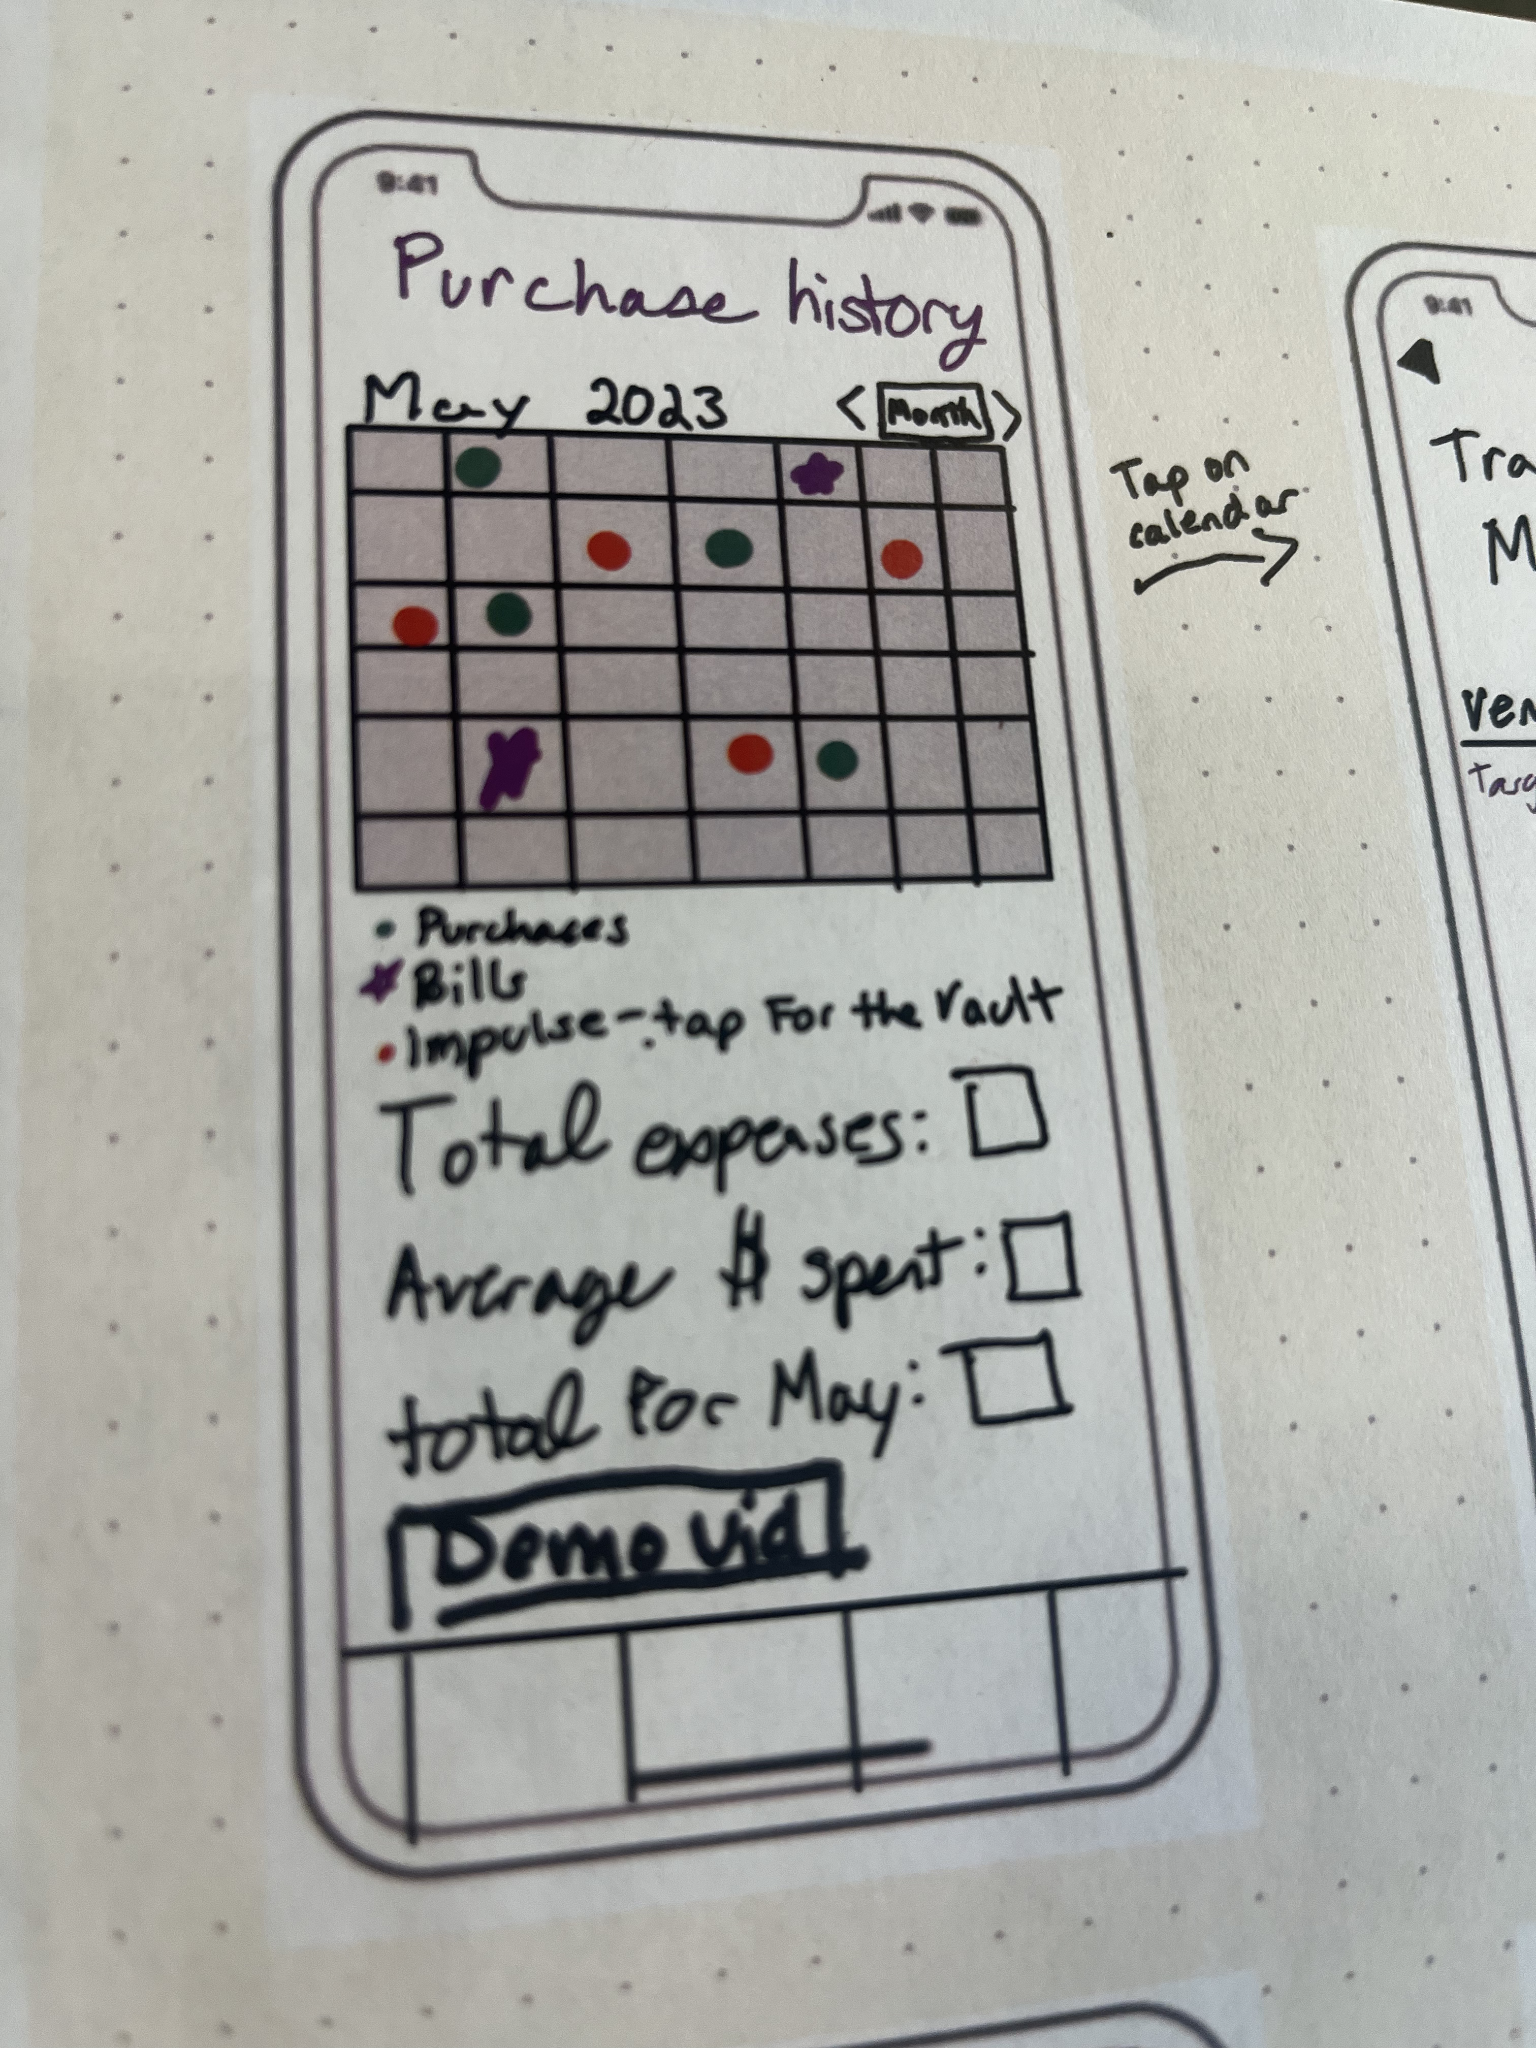 9:41
Purchase history
May 2023 < Month >
Purchases
Bills
Impulse - tap For the Vault
Total expenses:
Average $ spent:
total For May:
Demo vid
Tap on
calendar
9:41
Tra
M
Ven
Targ